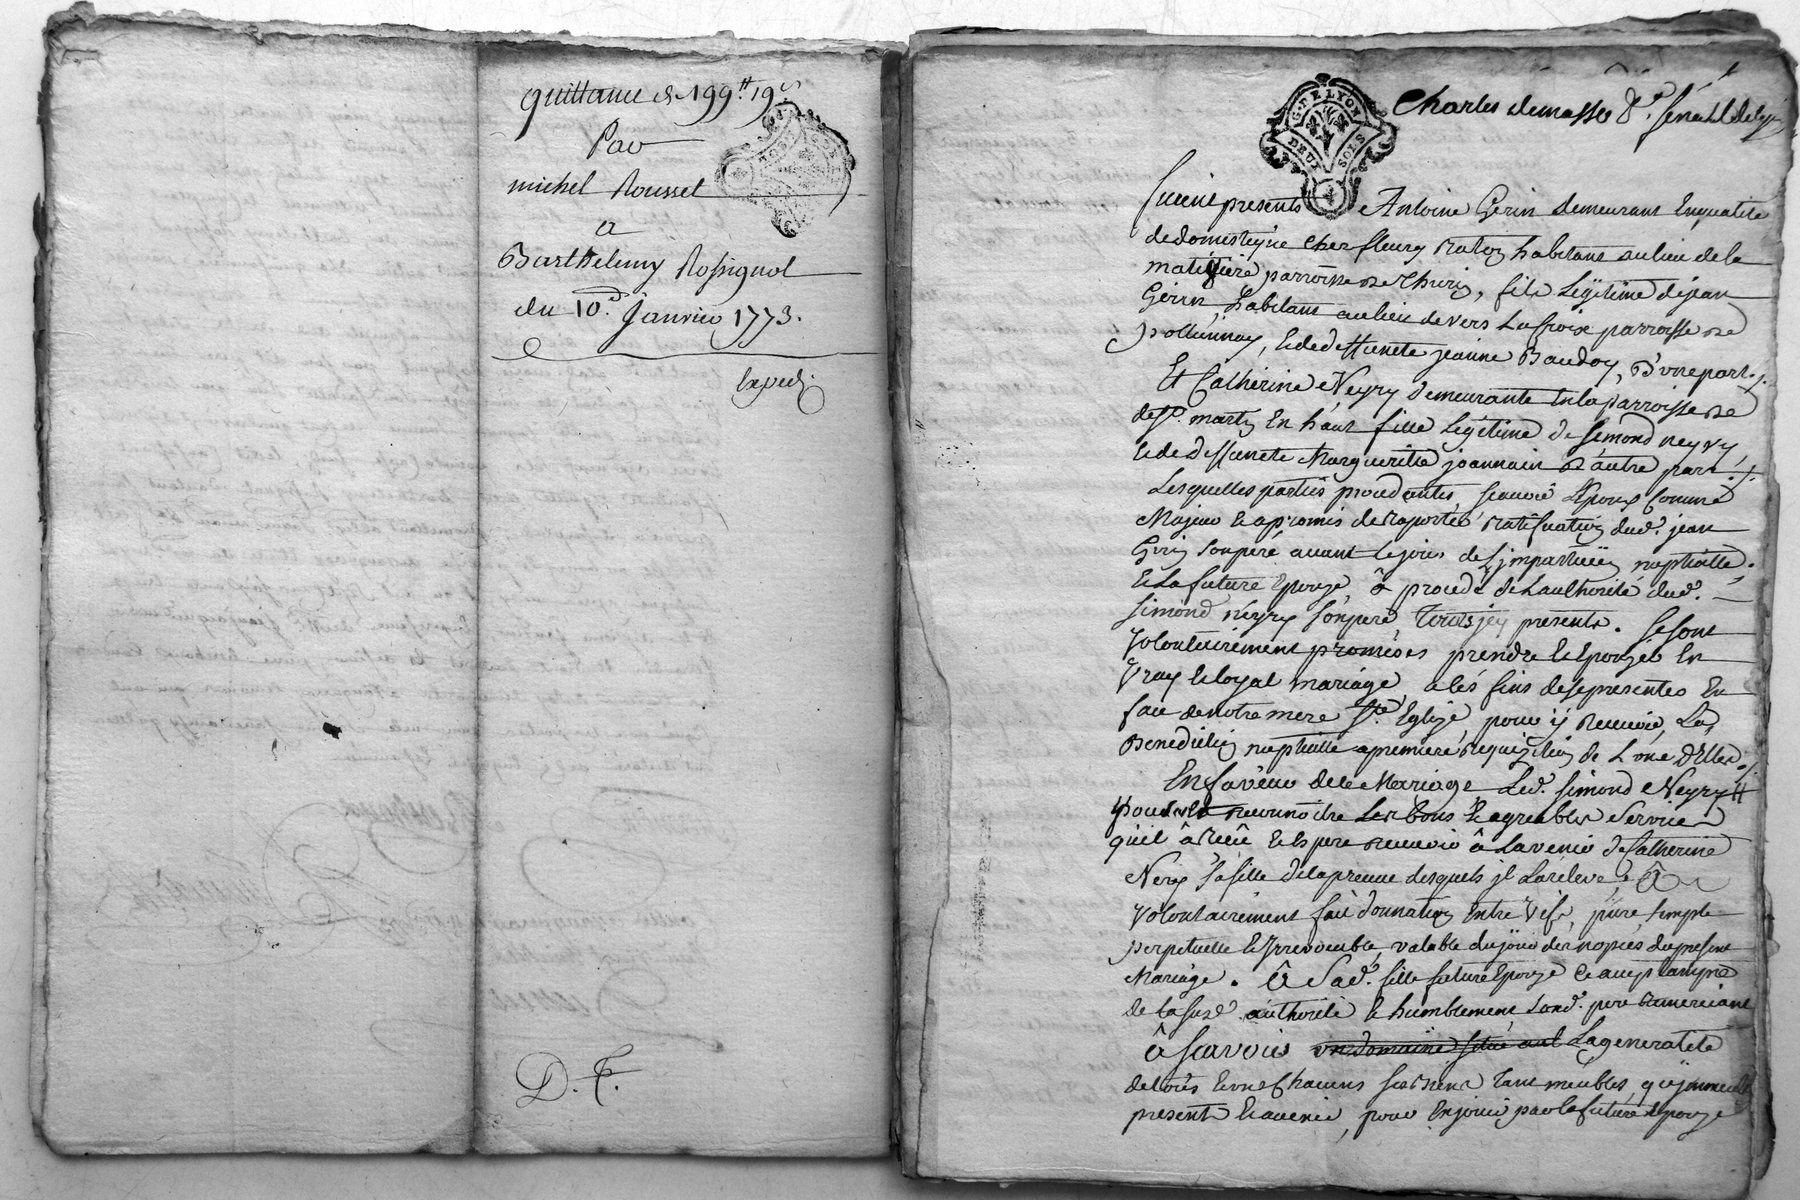 quittance de 199ᵗᵗ 19ˢ
Par
michel Rousset
a
Barthelemy Rossignol
du 10.ᵉ Janvier 1773.
D. F.
G. DE LYON
DEUX SOLS
Charles demasso
furent presents Antoine Gerin demeurant En qualite
de domestique cher fleury habitant au lieu de la
parroisse de Thurin, fils Legitime de jean
Gerin habitant au lieu de vers La Croix parroisse de
pollionnay, et de deffuncte jeanne Baudoy, D'une part./.
Et Catherine Neyry demeurante En la parroisse de
de Sᵗ. martin En haut fille Legitime de Simond neyry
et de deffuncte Marguerite joannain D'autre part./.
Lesquelles parties procedantes, scavoir L'Epoux Comme
Majeur et a promis de raporter ratification dud. jean
Gerin son pere avant le jour de L'impartition nuptialle.
et La future Epouze, à procedé de L'authorité dud.
Simond neyry son pere Tous jcy presents. Se sont
volontairement promis prendre et Epouzer En
vray et loyal mariage, a les fins de se presenter En
face de notre mere Sᵗᵉ Eglize pour ÿ recevoir La
Benediction nuptialle a premiere requizition de L'une D'Elles./.
En faveur de ce Mariage Led. Simond Neyry
pour reconnoitre Les bons et agreables Services
qu'il à reçu et Espere recevoir à L'avenir de Catherine
Nery sa fille de la preuve desquels jl La releve, à
volontairement fait donnation Entre vifs, pure, simple
perpetuelle et jrrevocable, valable du jour des nopces du present
Mariage. à Sad. fille future Epouze ce acceptante
de la susd authorité et humblement Sond. pere remerciant
à scavoir un domaine situé au La generalité
de tous et un Chacuns ses biens tant meubles, qu'jmmeubles
present et avenir, pour En jouir par la future Epouze